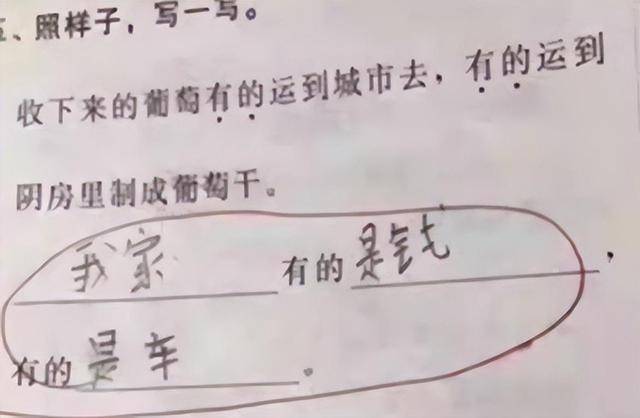 、照样子，写一写。
收下来的葡萄有的运到城市去，有的运到
阴房里制成葡萄干。
我家有的是钱，
有的是车。